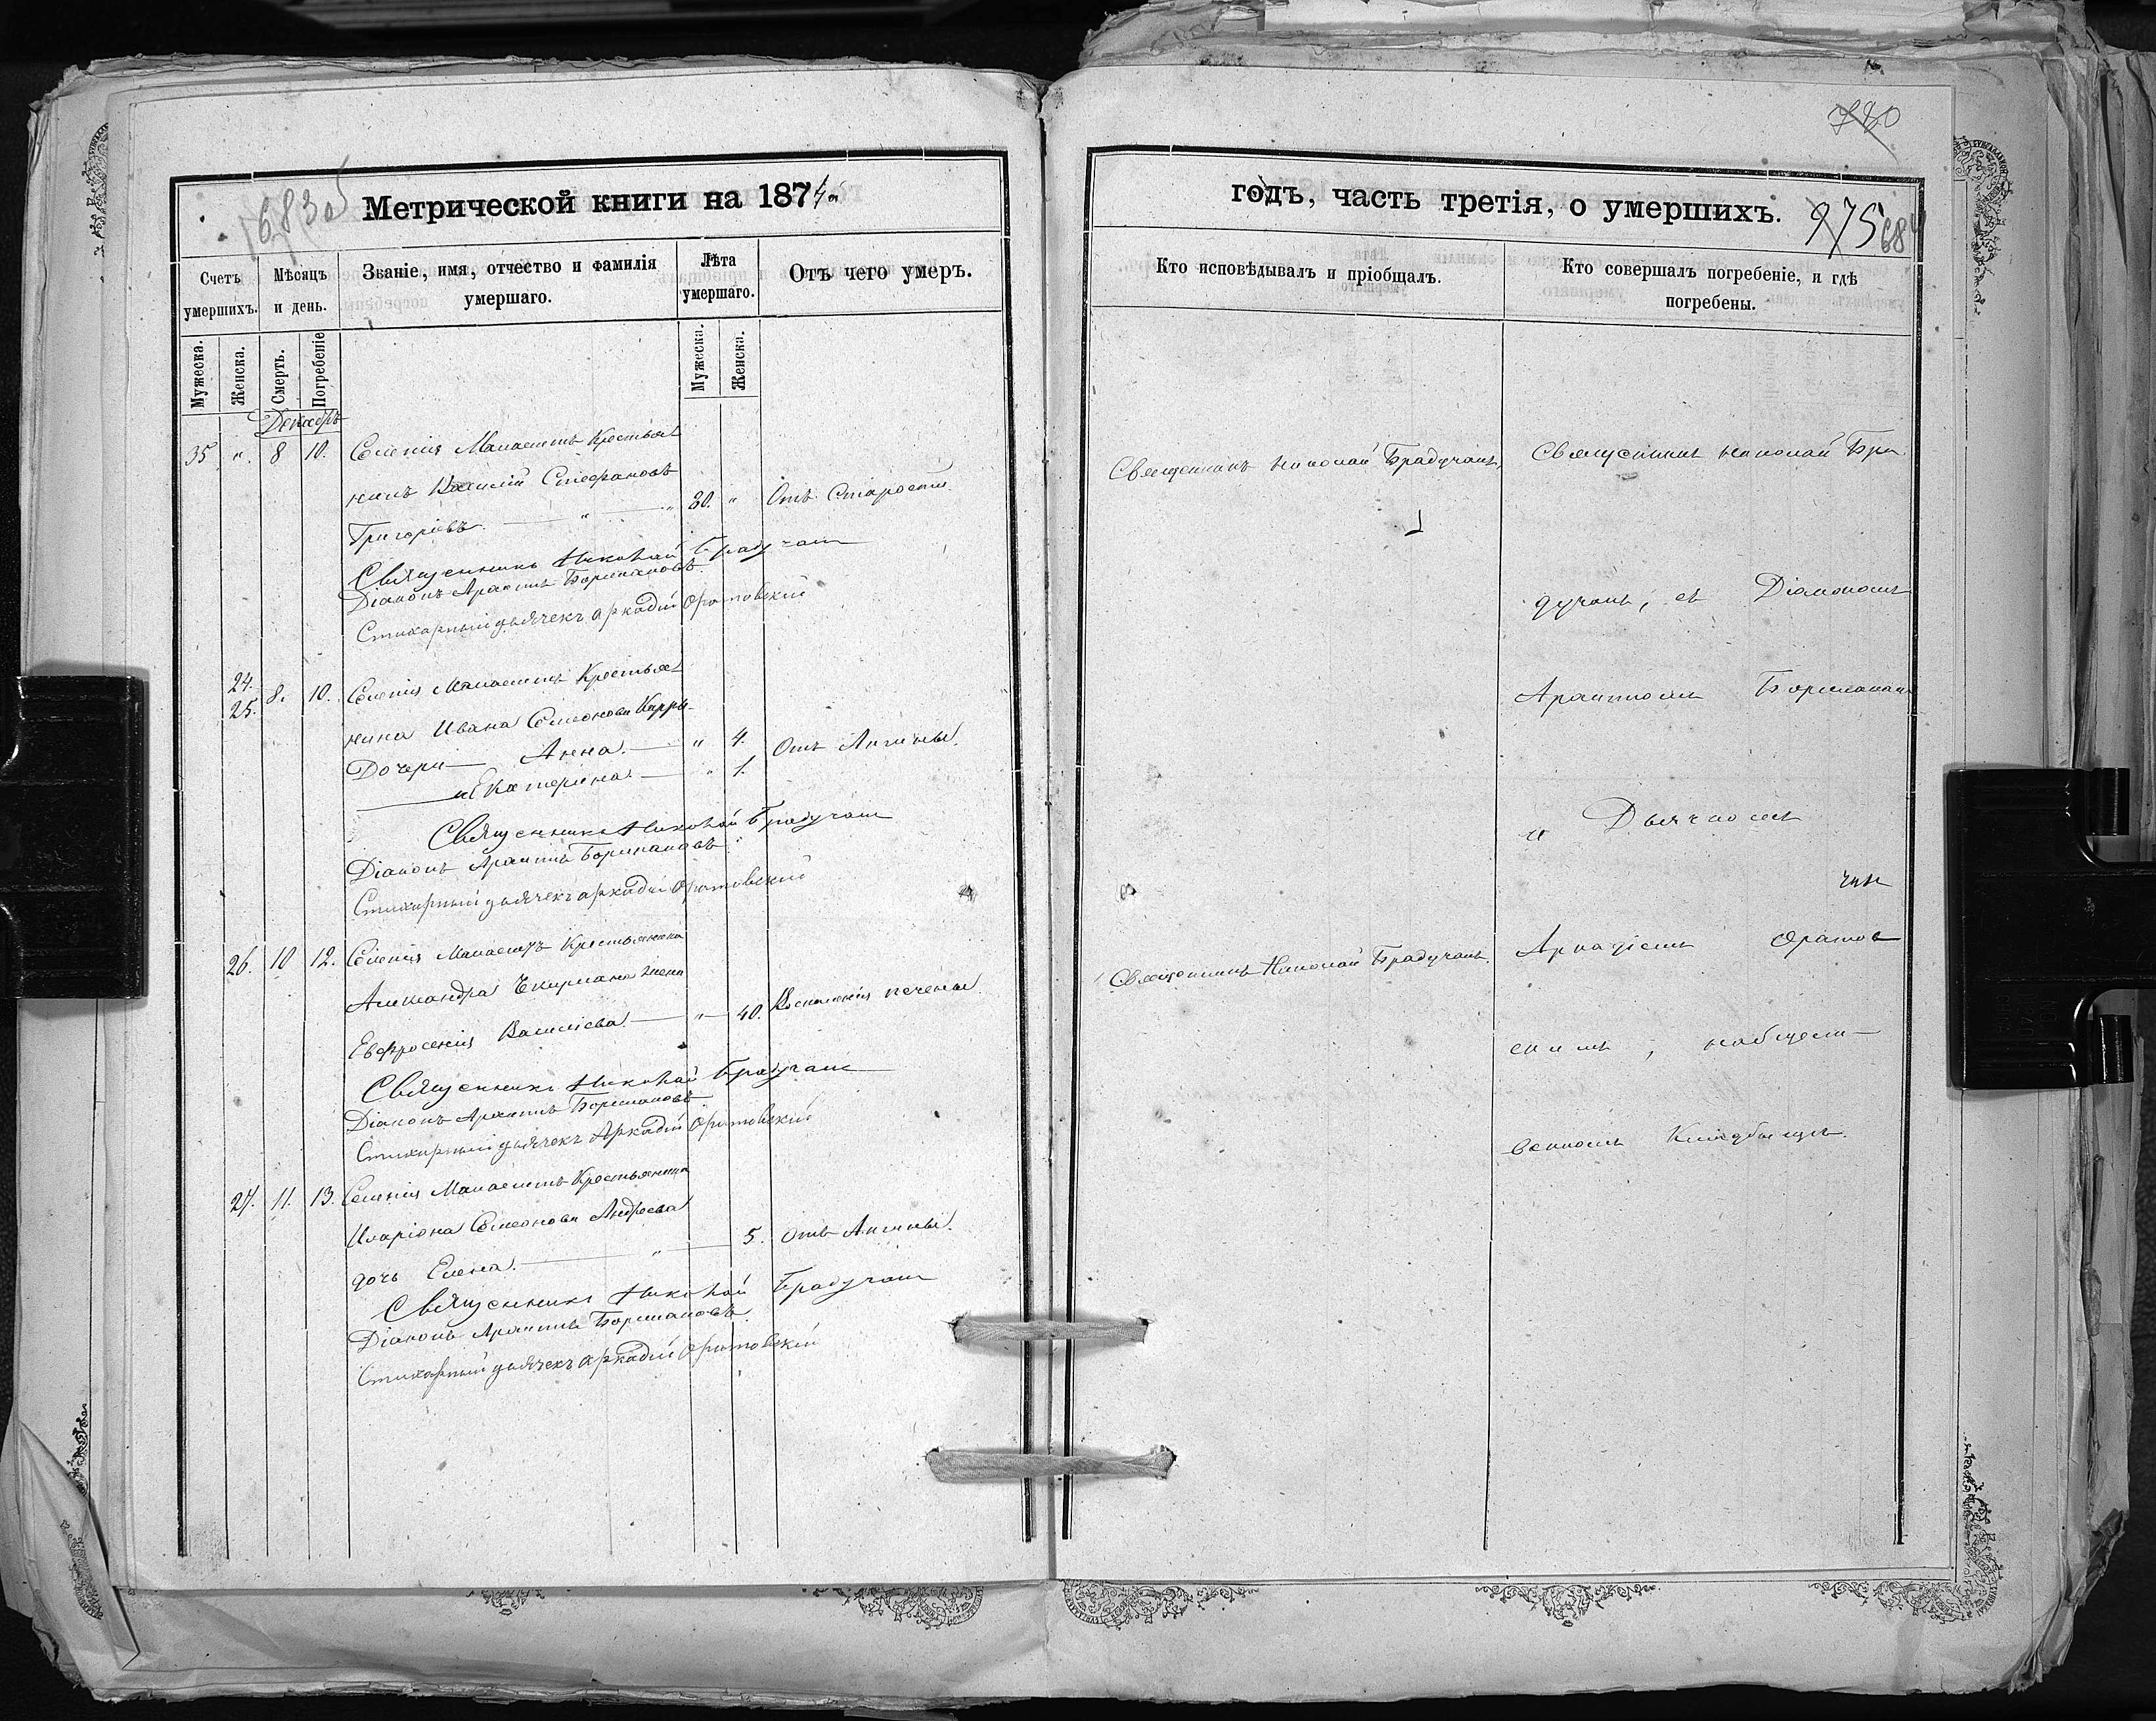 Метрической книги на 1874
Счетъ умершихъ.
Мѣсяцъ и день.
Званіе, имя, отчество и фамилія умершаго.
Лѣта умершаго.
Отъ чего умеръ.
Мужеска.
Женска.
Смерть.
Погребеніе
Мужеска.
Женска.
Декабрь
35 " 8 10. Селенія Манаештъ Крестья
нинъ Василій Стефановъ
Григоріевъ. " " 80. " Отъ Старости
Священникъ Николай Брадучанъ
Діаконъ Боршановъ
Стихарный дьячекъ Аркадій Оратовскій
24.
25. 8. 10. Селенія Манаештъ Крестья
нина Ивана Семеонова
Дочери Анна. " 4. Отъ Ангины.
и Екатерина. " 1.
Священникъ Николай Брадучанъ
Діаконъ Боршановъ
Стихарный дьячекъ Аркадій Оратовскій
26. 10 12. Селенія Манаештъ Крестьянина
Александра жена
Евфросенія Василіева. " 40. Воспаленія печены.
Священникъ Николай Брадучанъ
Діаконъ Боршановъ
Стихарный дьячекъ Аркадій Оратовскій
27. 11. 13. Селенія Манаештъ Крестьянина
Иларіона Семеонова Андреева
дочь Елена. " 5. Отъ Ангины.
Священникъ Николай Брадучанъ
Діаконъ Боршановъ
Стихарный дьячекъ Аркадій Оратовскій
780
годъ, часть третія, о умершихъ.
975
Кто исповѣдывалъ и пріобщалъ.
Кто совершалъ погребеніе, и гдѣ погребены.
Священникъ Николай Брадучанъ,
Священникъ Николай Бра
дучанъ, съ Діакономъ
и Дьячкомъ
Священникъ Николай Брадучанъ.
Аркадіемъ Оратов
скимъ, наобщест
венномъ Кладбищѣ.